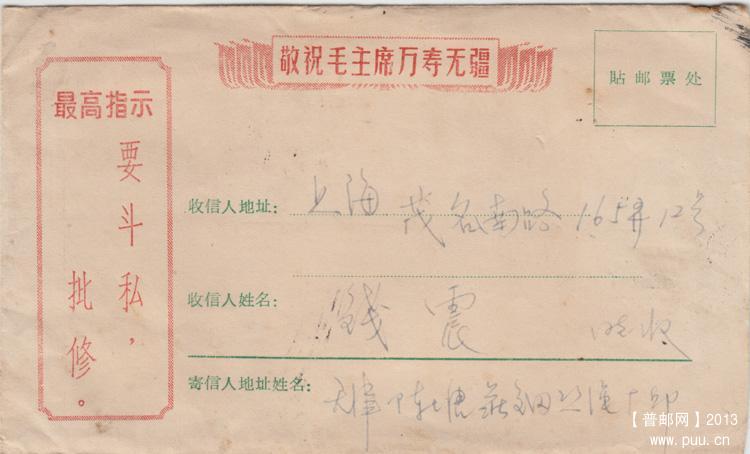 敬祝毛主席万寿无疆
贴邮票处
最高指示
要斗私，
批修。
收信人地址：上海 茂名南路 165弄12号
收信人姓名：钱震 收
寄信人地址姓名：天津
【普邮网】2013
www.puu.cn